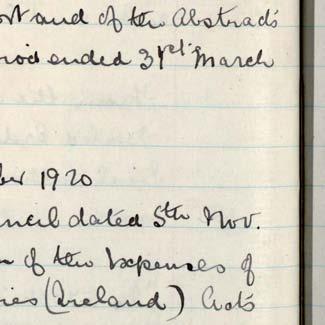 ort and of the Abstracts
riod ended 31st March
ber 1920
uncil dated 5th Nov.
n of the Expenses of
ies (Ireland) Acts